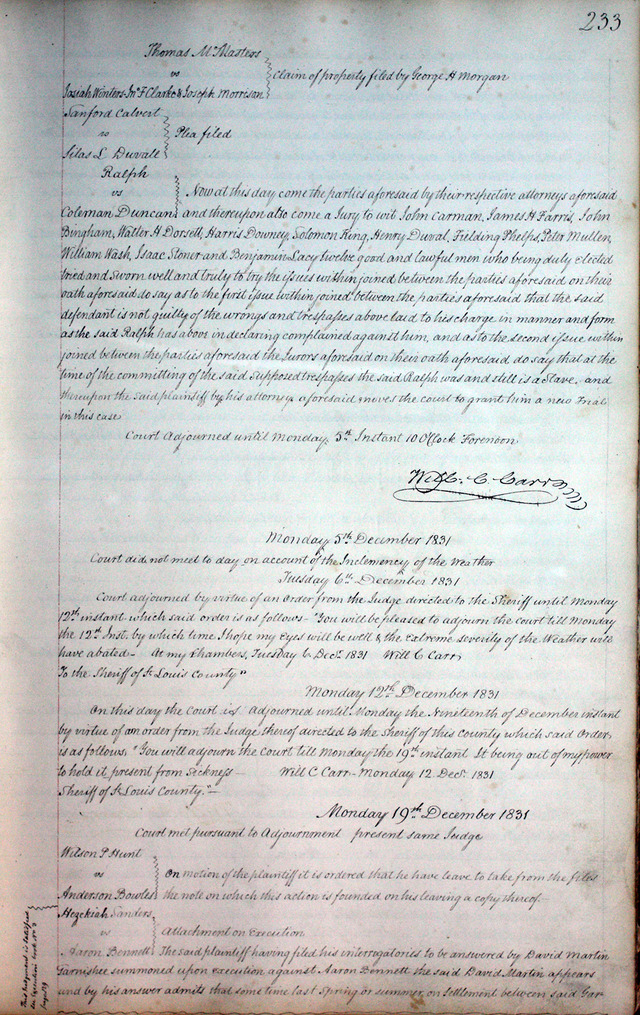 233
Thomas McMasters
vs
Claim of property filed by George H Morgan
Josiah Winters Jno F Clarke & Joseph Morrison
Sanford Calvert
vs
Plea filed
Silas L Duvall
Ralph
vs
Now at this day come the parties aforesaid by their respective attorneys aforesaid
Coleman Duncan
and thereupon also come a Jury to wit John Carman, James H Farris, John
Bingham, Walter H Dorsett, Harris Downey, Solomon King, Henry Duval, Fielding Phelps, Peter Mullen,
William Wash, Isaac Stover and Benjamin Lacy twelve good and lawful men who being duly elected
tried and Sworn well and truly to try the issues within joined between the parties aforesaid on their
oath aforesaid do say as to the first issue within joined between the parties aforesaid that the said
defendant is not guilty of the wrongs and trespasses above laid to his charge in manner and form
as the said Ralph has above in declaring complained against him, and as to the second issue within
joined between the parties aforesaid the Jurors aforesaid on their oath aforesaid do say that at the
time of the committing of the said supposed trespasses the said Ralph was and still is a Slave, and
thereupon the said plaintiff by his attorney aforesaid moves the court to grant him a new Trial
in this case
Court Adjourned until Monday 5th Instant 10 OClock Forenoon
Will. C. Carr
Monday 5th December 1831
Court did not meet to day on account of the Inclemency of the Weather
Tuesday 6th December 1831
Court adjourned by virtue of an Order from the Judge directed to the Sheriff until Monday
12th instant which said order is as follows - "You will be pleased to adjourn the court till Monday
the 12th Inst. by which time I hope my Eyes will be well & the Extreme severity of the Weather will
have abated - At my Chambers, Tuesday 6 Dec. 1831 Will C Carr
To the Sheriff of St Louis County"
Monday 12th December 1831
On this day the Court is Adjourned until Monday the Nineteenth of December instant
by virtue of an order from the Judge thereof directed to the Sheriff of this County which said Order
is as follows, "You will adjourn the Court till Monday the 19th instant It being out of my power
to hold it present from Sickness - Will C Carr - Monday 12 Dec. 1831
Sheriff of St Louis County." -
Monday 19th December 1831
Court met pursuant to Adjournment present same Judge
Wilson P Hunt
vs
On motion of the plaintiff it is ordered that he have leave to take from the files
Anderson Bowles
the note on which this action is founded on his leaving a copy thereof -
Hezekiah Sanders
vs
Attachment on Execution
Aaron Bennett
The said plaintiff having filed his interrogatories to be answered by David Martin
Garnishee summoned upon execution against Aaron Bennett the said David Martin appears
and by his answer admits that some time last Spring or summer, on Settlement between said Gar-
This Judgment is satisfied